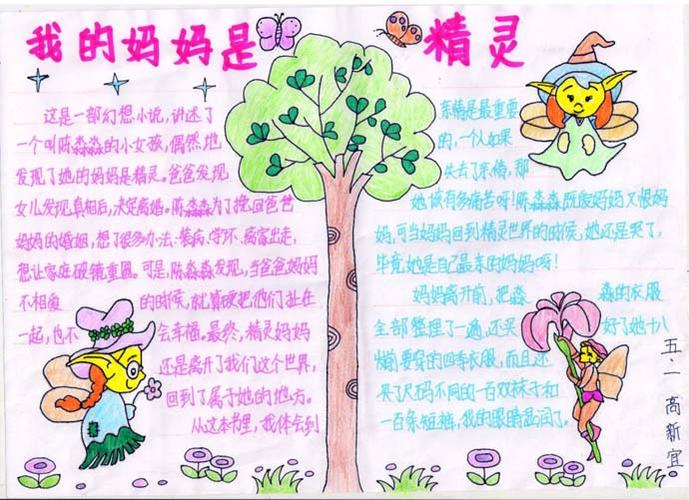 我的妈妈是精灵
这是一部幻想小说，讲述了
一个叫陈淼淼的小女孩，偶然地
发现了她的妈妈是精灵。爸爸发现
女儿发现真相后，决定离婚。陈淼淼为了挽回爸爸
妈妈的婚姻，想了很多办法：装病、学坏、离家出走，
想让家庭破镜重圆。可是，陈淼淼发现，当爸爸妈妈
不相爱的时候，就算硬把他们扯在
一起，也不会幸福。最终，精灵妈妈
还是离开了我们这个世界，
回到了属于她的地方。
从这本书里，我体会到
亲情是最重要
的，一个人如果
失去了亲情，那
她该有多痛苦呀！陈淼淼既爱妈妈又恨妈
妈，可当妈妈回到精灵世界的时候，她还是哭了，
毕竟她是自己最亲的妈妈呀！
妈妈离开前，把淼淼的衣服
全部整理了一遍，还买好了她十八
岁前要穿的四季衣服，而且还
买了尺码不同的一百双袜子和
一百条短裤，我的眼睛湿润了。
五.一高新宜